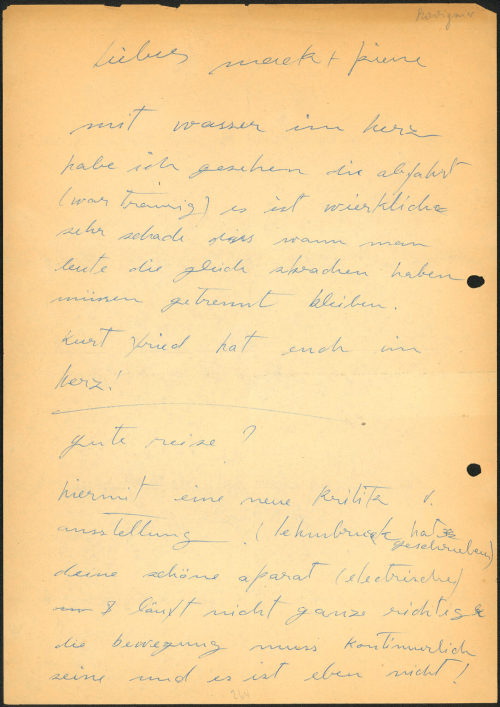 Liebes mack + piene
mit wasser im herz
habe ich gesehen die abfahrt
(war trainig) es ist wierkliche
sehr schade dass wann man
leute die glück sprachen haben
müssen getrennt bleiben.
Kurt Fried hat euch im
herz!
gute reise?
hiermit eine neue Kritik v.
ausstellung. (lehmbruck hat
geschrieben)
deine schöne aparat (electrische)
läuft nicht ganze richtig
die bewegung muss kontinuerlich
seine und es ist eben nicht!
264